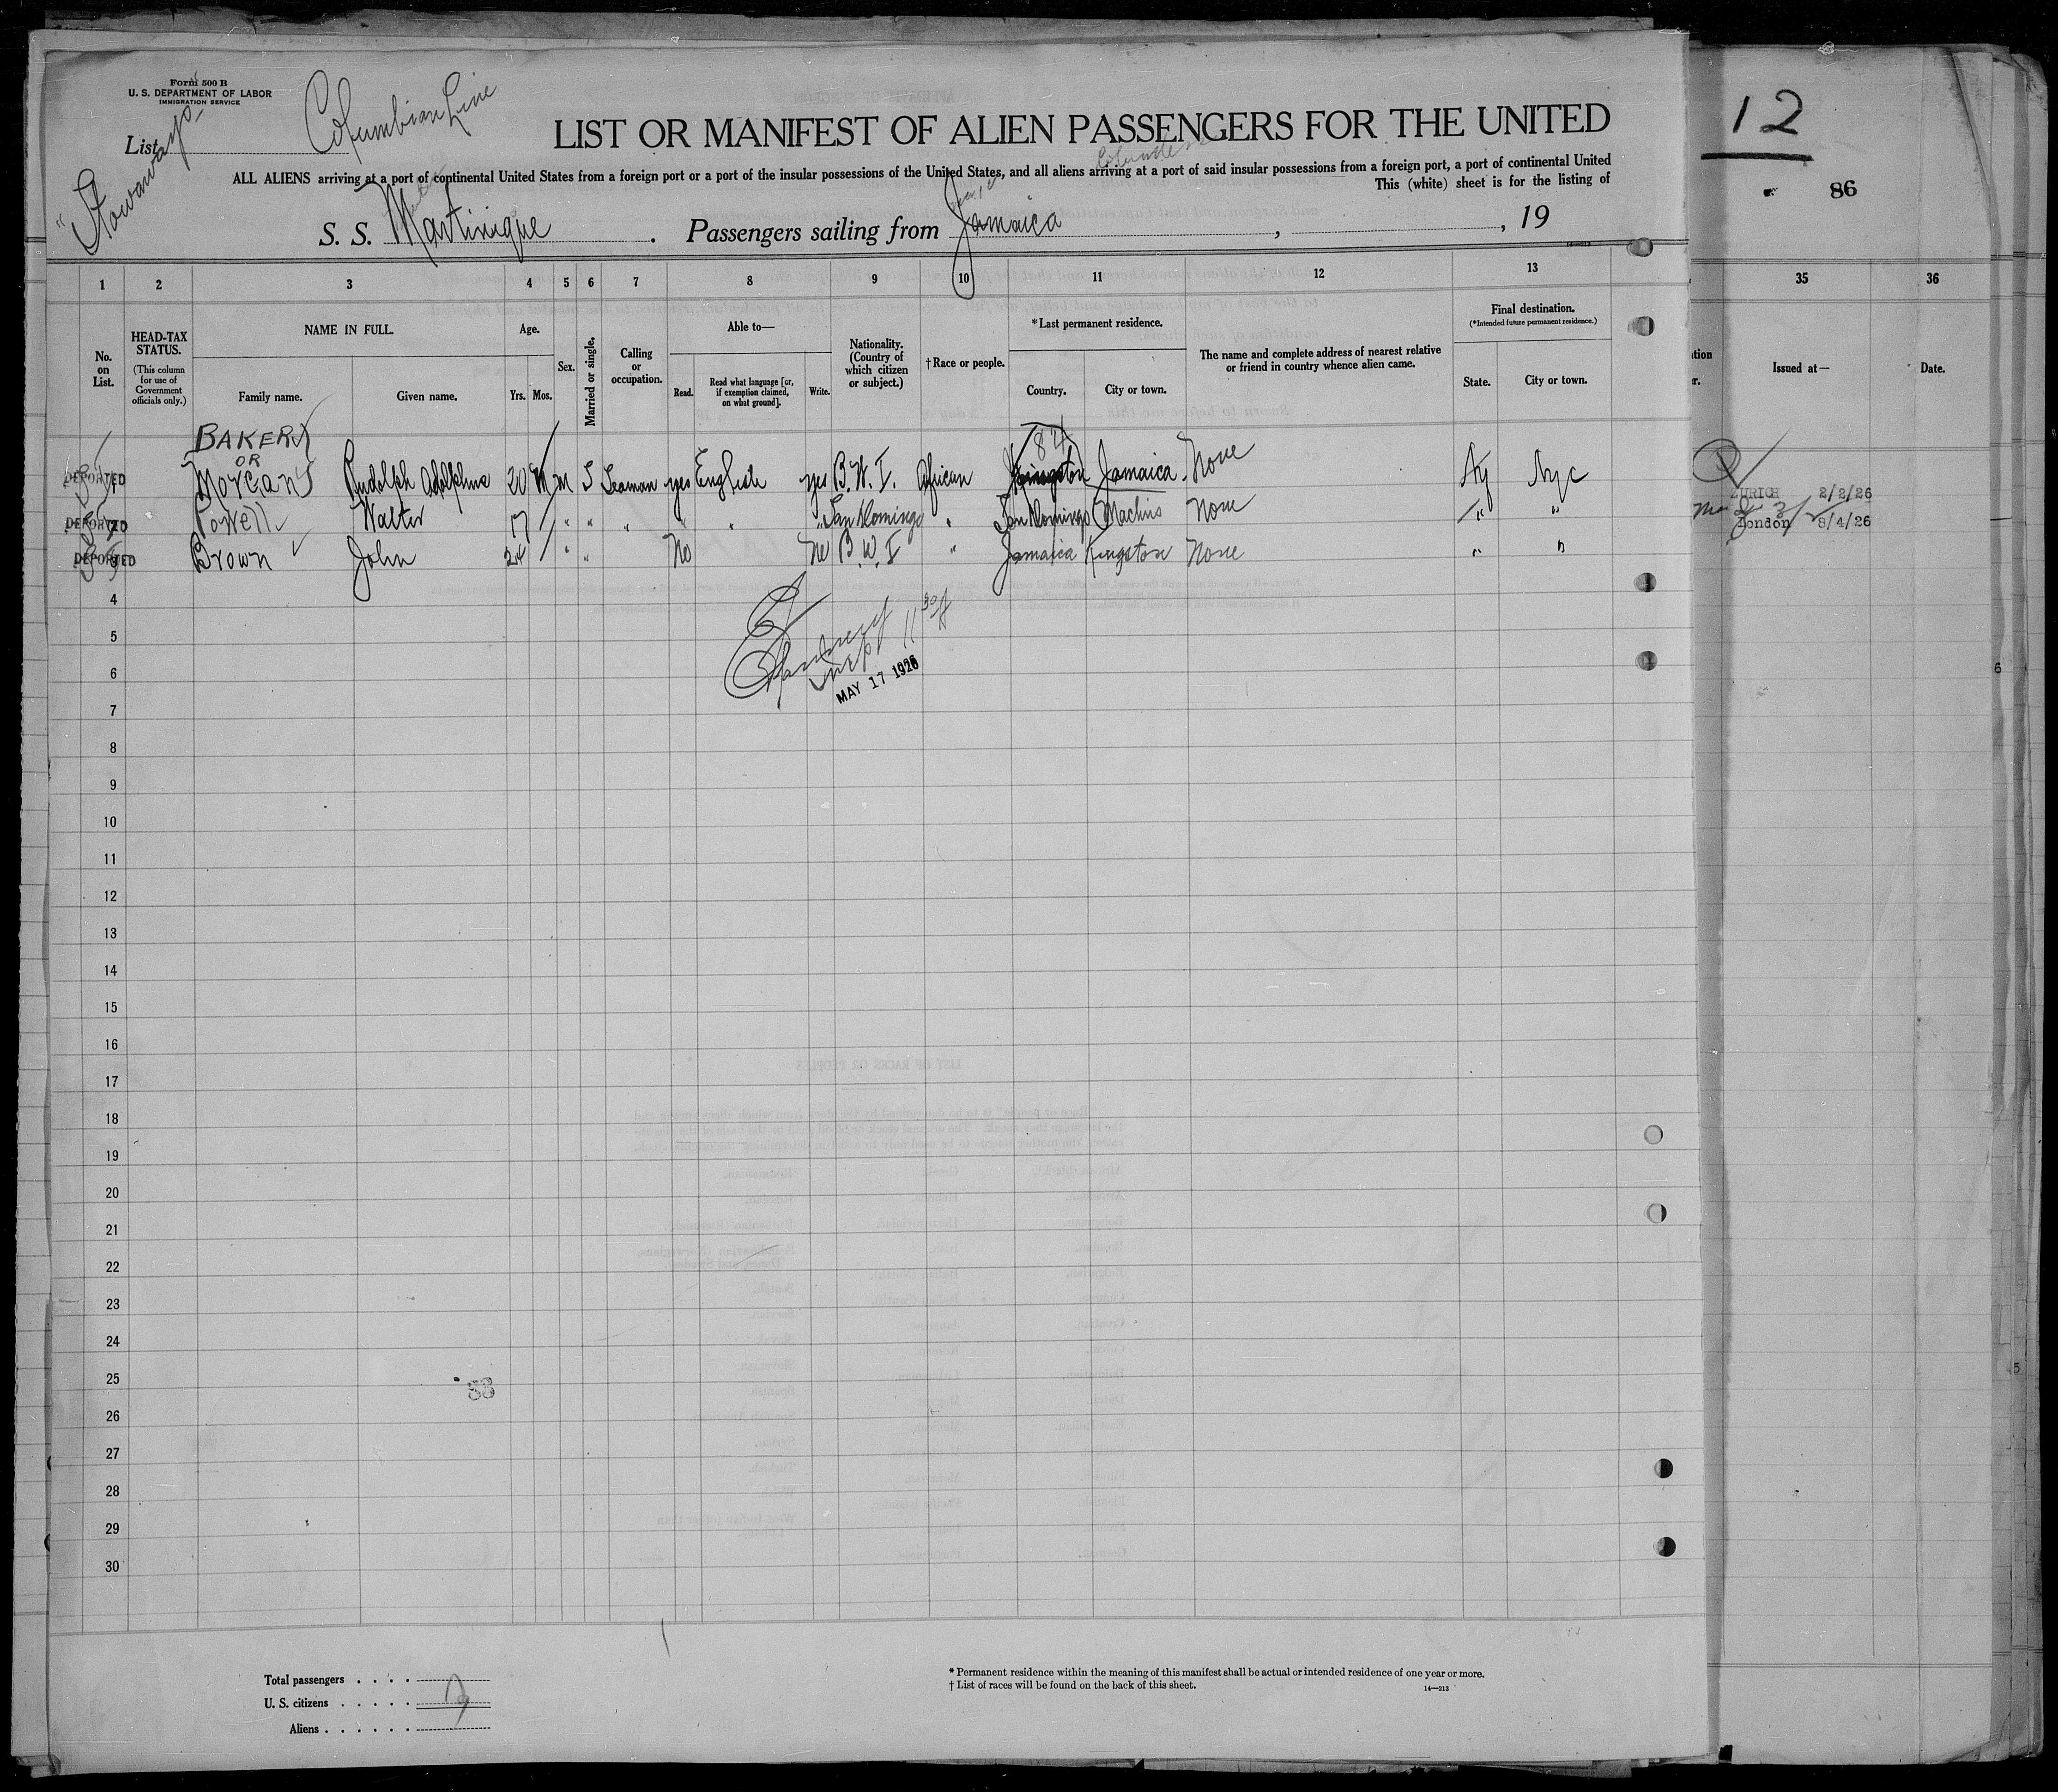 Form 500 B
U. S. DEPARTMENT OF LABOR
IMMIGRATION SERVICE
List
"Stowaways"
Columbian Line
LIST OR MANIFEST OF ALIEN PASSENGERS FOR THE UNITED
ALL ALIENS arriving at a port of continental United States from a foreign port or a port of the insular possessions of the United States, and all aliens arriving at a port of said insular possessions from a foreign port, a port of continental United
This (white) sheet is for the listing of
S. S. Martinique . Passengers sailing from Jamaica , , 19
12
86
1 2 3 4 5 6 7 8 9 10 11 12 13 35 36
No. on List.
HEAD-TAX STATUS.
(This column for use of Government officials only.)
NAME IN FULL.
Family name. Given name.
Age.
Yrs. Mos.
Sex.
Married or single.
Calling or occupation.
Able to—
Read. Read what language [or, if exemption claimed, on what ground]. Write.
Nationality. (Country of which citizen or subject.)
†Race or people.
*Last permanent residence.
Country. City or town.
The name and complete address of nearest relative or friend in country whence alien came.
Final destination.
(*Intended future permanent residence.)
State. City or town.
Issued at— Date.
84
BAKER
OR
DEPORTED Morgan Rudolph Adolphus 20 M S Seaman yes English yes B. W. I. African Kingston Jamaica None Ny Nyc
DEPORTED Powell Walter 17 " " " " " " San Domingo " San Domingo Machus None " "
DEPORTED Brown John 24 " " No No B. W. I " Jamaica Kingston None " "
ZURICH 2/2/26
London 8/4/26
11 30 A
MAY 17 1926
4
5
6
7
8
9
10
11
12
13
14
15
16
17
18
19
20
21
22
23
24
25
26
27
28
29
30
33
Total passengers . . . .
U. S. citizens . . . . .
Aliens . . . . . .
* Permanent residence within the meaning of this manifest shall be actual or intended residence of one year or more.
† List of races will be found on the back of this sheet.
14—213